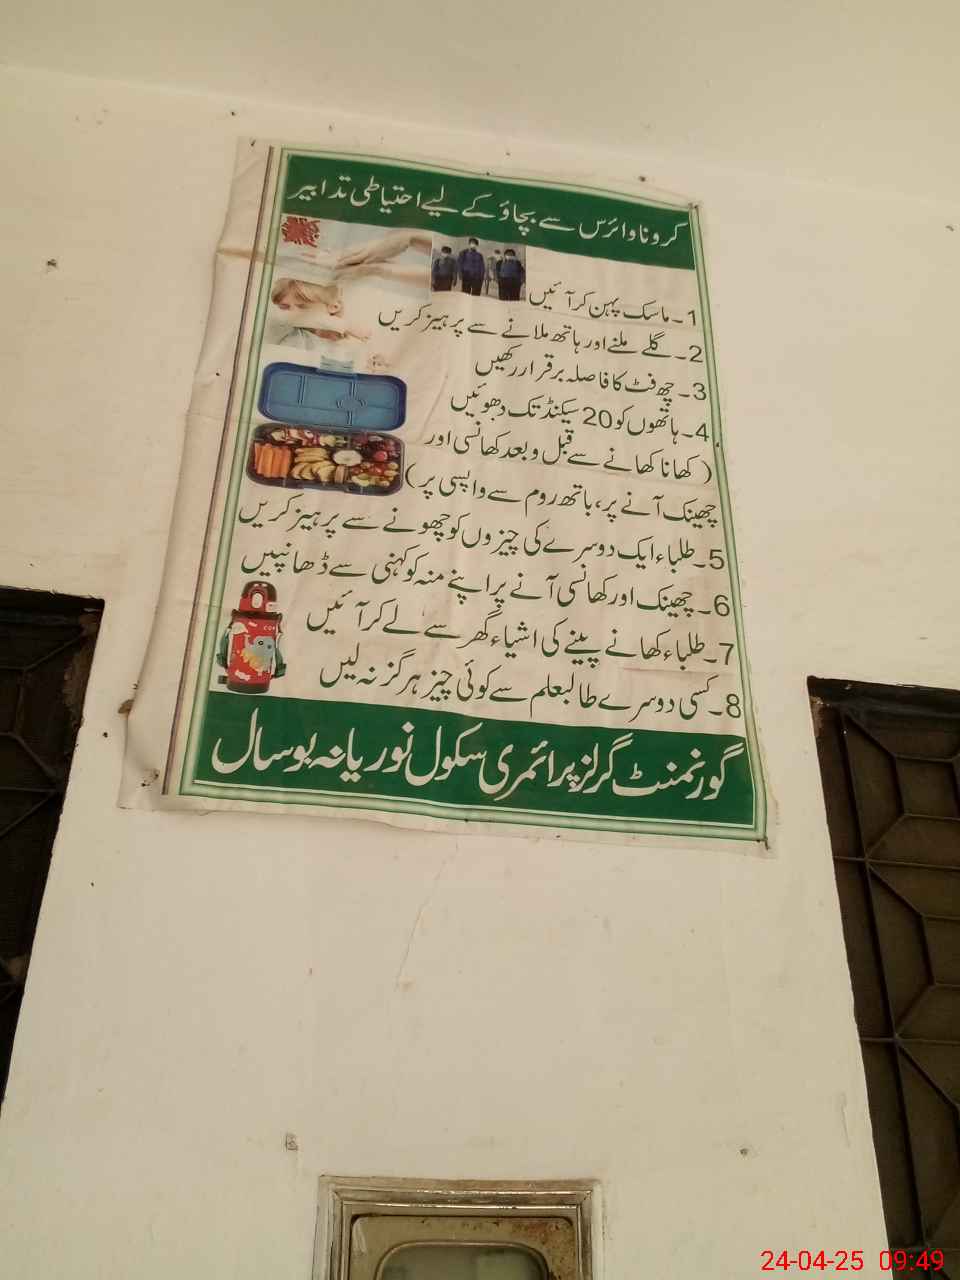 کرونا وائرس سے بچاؤ کے لیے احتیاطی تدابیر
1۔ماسک پہن کر آئیں
2۔گلے ملنے اور ہاتھ ملانے سے پرہیز کریں
3۔چھ فٹ کا فاصلہ برقرار رکھیں
4۔ہاتھوں کو 20 سیکنڈ تک دھوئیں
(کھانا کھانے سے قبل و بعد کھانسی اور
چھینک آنے پر، باتھ روم سے واپسی پر)
5۔طلباء ایک دوسرے کی چیزوں کو چھونے سے پرہیز کریں
6۔چھینک اور کھانسی آنے پر اپنے منہ کو کہنی سے ڈھانپیں
7۔طلباء کھانے پینے کی اشیاء گھر سے لے کر آئیں
8۔کسی دوسرے طالبعلم سے کوئی چیز ہرگز نہ لیں
گورنمنٹ گرلز پرائمری سکول نوریانہ بوسال
24-04-25 09:49